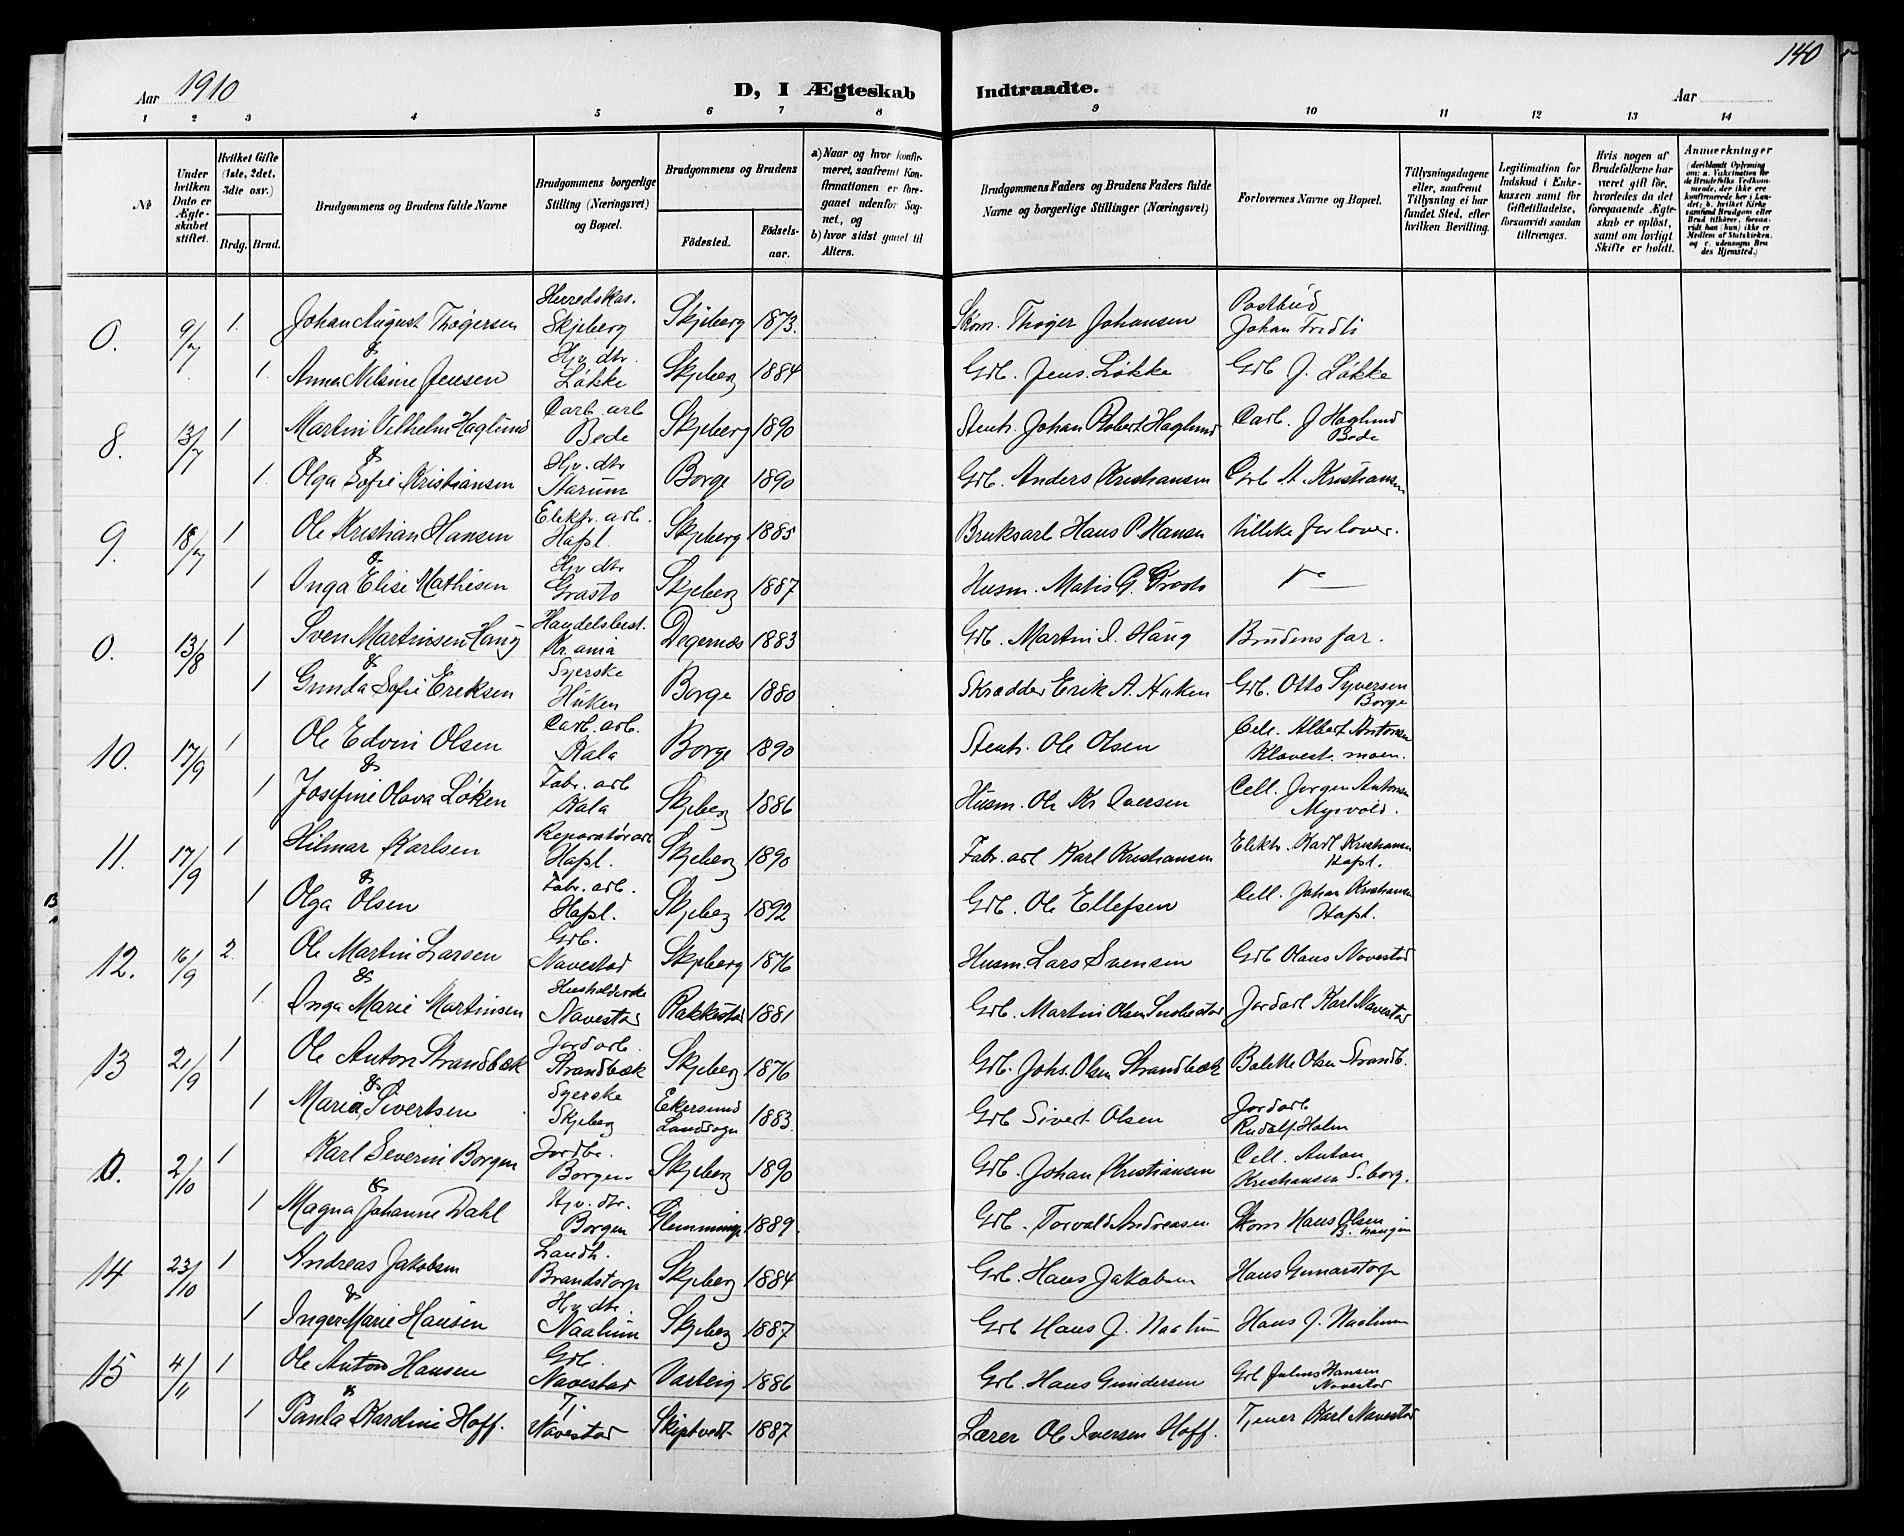 140
Aar 1910
D, I Ægteskab Indtraadte.
Aar
1 2 3 4 5 6 7 8 9 10 11 12 13 14
No
Under hvilken Dato er Ægteskabet stiftet.
Hvilket Gifte (1ste, 2det, 3die osv.)
Brdg. Brud.
Brudgommens og Brudens fulde Navne
Brudgommens borgerlige Stilling (Næringsvei) og Bopæl.
Brudgommens og Brudens
Födested. Födselsaar.
a) Naar og hvor konfirmeret, saafremt Konfirmationen er foregaaet udenfor Sognet, og
b) hvor sidst gaaet til Alters.
Brudgommens Faders og Brudens Faders fulde Navne og borgerlige Stillinger (Næringsvei)
Forlovernes Navne og Bopæl.
Tillysningsdagene eller, saafremt Tillysning ei har fundet Sted, efter hvilken Bevilling.
Legitimation for Indskud i Enkekassen samt for Giftetilladelse, forsaavidt saadan tiltrænges.
Hvis nogen af Brudefolkene har været gift för, hvorledes da det foregaaende Ægteskab er oplöst, samt om lovligt Skifte er holdt.
Anmærkninger
0. 9/7 1. Johan August Thøgersen Herredskas. Skjeberg Skjeberg 1873. Skom. Thøger Johansen Postbud Johan Fridli
&
1. Anna Nilsine Jensen Hjv. dtr. Løkke Skjeberg 1884 Grb. Jens Løkke Grb J. Løkke
8. 13/7 1 Martin Vilhelm Haglund Carb. arb Bede Skjeberg 1890 Stenh. Johan Robert Haglund Carb. J Haglund Bede
&
1. Olga Sofie Kristiansen Hjv. dtr Starum Borge 1890 Grb. Anders Kristiansen Grb A. Kristiansen
9. 18/7 1 Ole Kristian Hansen Elektr. arb. Hafsl Skjeberg 1885 Bruksarb Hans P. Hansen
&
1 Inga Elise Mathisen Hjv dtr Grasto Skjeberg 1887 Husm. Matis G.
0. 13/8 1 Sven Martinsen Haug Handelsbest. Kr.ania Degernes 1883 Grb. Martin I. Haug Brudens far.
&
1 Gunda Sofie Ereksen Syerske Huken Borge 1880 Skrædder Erik A. Huken Grb. Otto Syversen Borge
10. 17/9 1 Ole Edvin Olsen Carb. arb. Kala Borge 1890 Stenh. Ole Olsen Cell. Albert Antonsen Klavest. moen.
&
1 Josefine Olava Løken Fabr. arb Kala Skjeberg 1886 Husm. Ole Kr Iversen Cell. Jørgen Antonsen Myrvold.
11. 17/9 1 Hilmar Karlsen Reparatørarb Hafsl. Skjeberg 1890 Fabr. arb Karl Kristiansen Elektr. Karl Kristiansen Hafsl.
&
1 Olga Olsen Fabr. arb. Hafsl. Skjeberg 1892 Grb. Ole Ellefsen Cell. Johan Kristiansen Hafsl.
12. 16/9 2. Ole Martin Larsen Grb. Navestad Skjeberg 1876 Husm. Lars Svensen Grb Olaus Navestad
&
1. Inga Marie Martinsen Husholderske Navestad Rakkestad 1881 Grb. Martin Olsen Jordarb Karl Navestad
13 21/9 1 Ole Anton Strandbæk Jordarb. Strandbæk Skjeberg 1876 Grb. Johs. Olsen Strandbæk Olsen Strandb.
&
1 Maria Sivertsen Syerske Skjeberg Ekersund Landsogn 1883. Grb Sivert Olsen Jordarb Rudolf Holm
0. 2/10 1 Karl Severin Borgen Jordbr. Borgen Skjeberg 1890 Grb. Johan Kristiansen Cell. Anton Kristiansen S.borg.
&
1 Magna Johanne Dahl Hjv. dtr. Borgen Glemminge 1889. Grb. Torvald Andreasen Skom Hans Olsen
14 23/10 1 Andreas Jakobsen Landh. Brandstorp Skjeberg 1884 Grb. Hans Jakobsen Hans Gunarstorp
&
1 Inger Marie Hansen Hjv. dtr. Naalum Skjeberg 1887 Grb Hans J. Naalum Hans J. Naalum
15 4/11 1 Ole Anton Hansen Grb. Navestad Varteig 1886 Grb. Hans Gundersen Grb Julius Hansen Navestad
&
1 Paula Kardine Hoff. Tj. Navestad Skiptvedt 1887 Lærer Ole Iversen Hoff. Tjener Karl Navestad